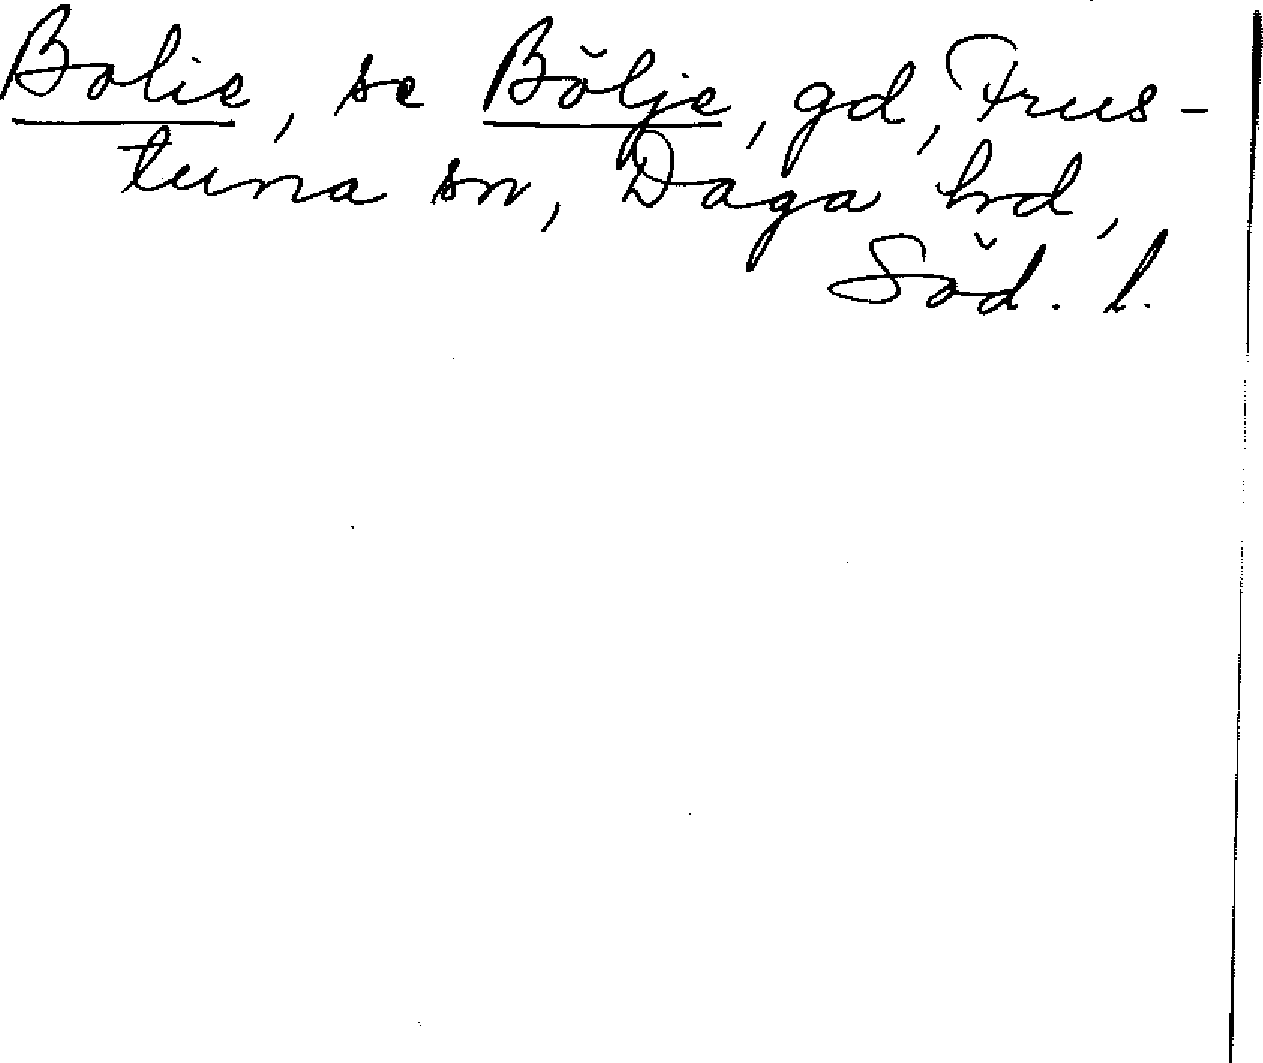 Bolie, se Bölje, gd, Frus-
tuna sn, Daga hd,
Söd. l.